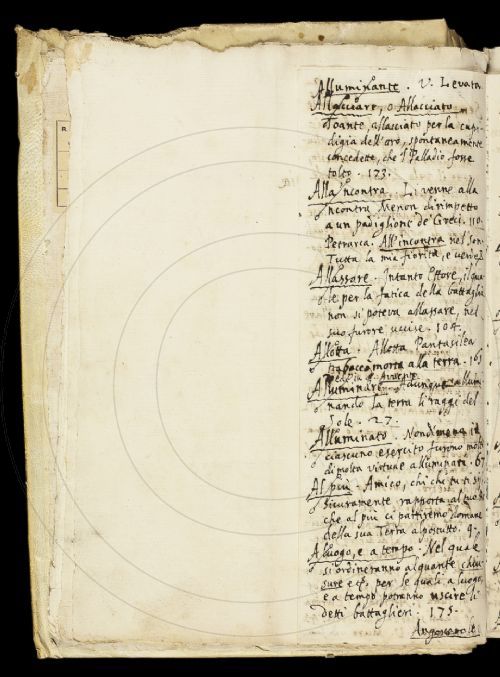 Alluminante. V. Levata
Allacciare, o Allacciato
Toante, allacciato per la cupi
digia dell'oro, spontaneamente
concedette, che'l Palladio fosse
tolto. 173.
Alla'ncontra. Li venne alla
'ncontra Menon dirimpetto
a un padiglione de' Greci. 110.
Petrarca. All'incontra nel Son.
Tutta la mia fiorita, e verde
Allassare. Intanto Ettore, il qua
le per la fatica della battaglia
non si poteva allassare, nel
suo furore uccise. 104.
Allotta. Allotta Pantasilea
trabocca morta alla terra. 161
Alluminare. dunque allumi
nando la terra li raggi del
Sole. 27.
Alluminato. Nondimeno in
ciascuno esercito furono molti
di molta virtude alluminati. 67
Al più. Amico, chi che tu ti sii
sicuramente rapporta al tuo
che al più ci partiremo domane
della sua Terra al postutto. 9.
A luogo, e a tempo. Nel quale
si ordineranno alquante chiu
sure per le quali a luogo,
e a tempo potranno uscire li
detti battaglieri. 175.